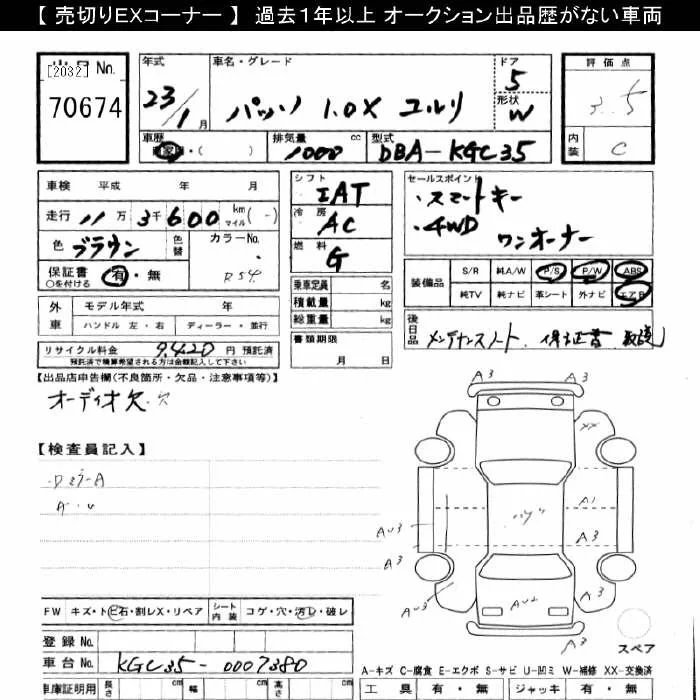 【 売切りEXコーナー 】 過去1年以上 オークション出品歴がない車両
出品 No.
[2032]
70674
年式
23/1月
車名・グレード
パッソ 1.0X ユルリ
ドア
5
形状
W
評価点
3.5
内装
C
車歴
自家用・( )
排気量 cc
1000
型式
DBA-KGC35
車検 平成 年 月
走行 11万3千600 km マイル (-)
色 ブラウン 色替
カラーNo.
R59
保証書 有・無
○を付ける
シフト
IAT
冷房
AC
燃料
G
乗車定員 名
積載量 kg
総重量 kg
書類期限
月 日
セールスポイント
・スマートキー
・4WD
ワンオーナー
装備品
S/R 純A/W P/S P/W ABS
純TV 純ナビ 革シート 外ナビ エアB
後日品
メンテナンスノート、保証書、取説
外車
モデル年式 年
ハンドル 左・右 ディーラー・並行
リサイクル料金 9,420 円 預託済
預託済で精算希望されれる方は金額記入して下さい
【出品店申告欄(不良箇所・欠品・注意事項等)】
オーディオ欠.欠
【検査員記入】
A3
A3
XX
A1
AU3
A3
A3
AU3
AU2
A3
A3
スペア
FW キズ・ト ビ石・割レX・リペア
シート内装 コゲ・穴・汚レ・破レ
登録 No.
車台 No. KGC35-0007380
車庫証明用 長さ cm 幅 cm 高さ cm
A-キズ C-腐食 E-エクボ S-サビ U-凹ミ W-補修 XX-交換済
工具 有・無 ジャッキ 有・無